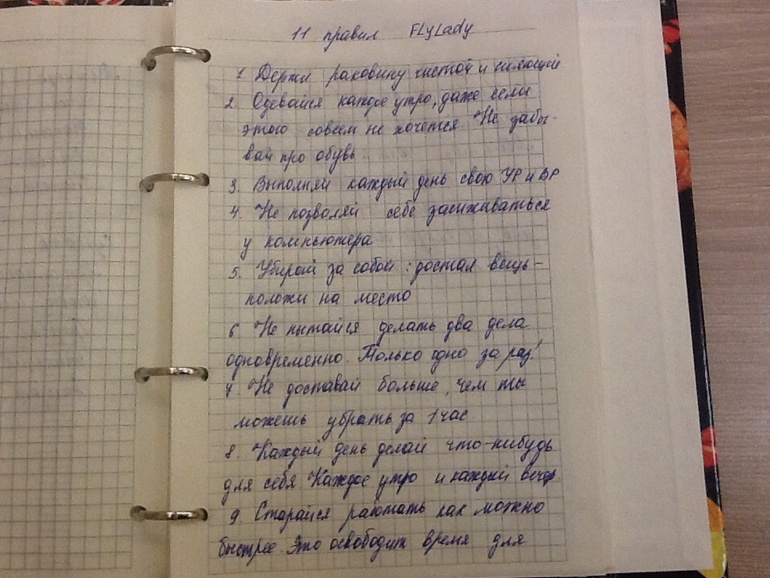 11 правил FlyLady
1. Держи раковину чистой и сияющей
2. Одевайся каждое утро, даже если
этого совсем не хочется. Не забы-
вай про обувь.
3. Выполняй каждый день свою УР и ВР
4. Не позволяй себе засиживаться
у компьютера
5. Убирай за собой: достал вещь-
положи на место
6. Не пытайся делать два дела
одновременно. Только одно за раз!
7. Не доставай больше, чем ты
можешь убрать за 1 час
8. Каждый день делай что-нибудь
для себя Каждое утро и каждый вечер
9. Старайся работать как можно
быстрее. Это освободит время для